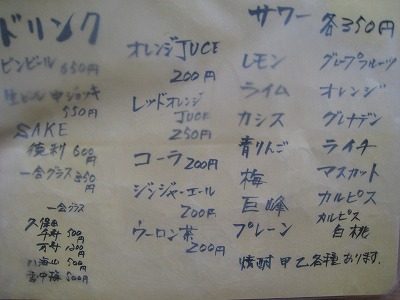 ドリンク
ビンビール 650円
生ビール 中ジョッキ
550円
SAKE
徳利 600円
一合グラス 350円
一合グラス
久保田
千寿 500円
万寿 1200円
八海山 500円
雪中梅 500円
オレンジJUCE
200円
レッドオレンジ
JUCE
250円
コーラ 200円
ジンジャーエール
200円
ウーロン茶
200円
サワー 各350円
レモン
ライム
カシス
青りんご
梅
巨峰
プレーン
グレープフルーツ
オレンジ
グレナデン
ライチ
マスカット
カルピス
カルピス
白桃
焼酎 甲乙各種あります.